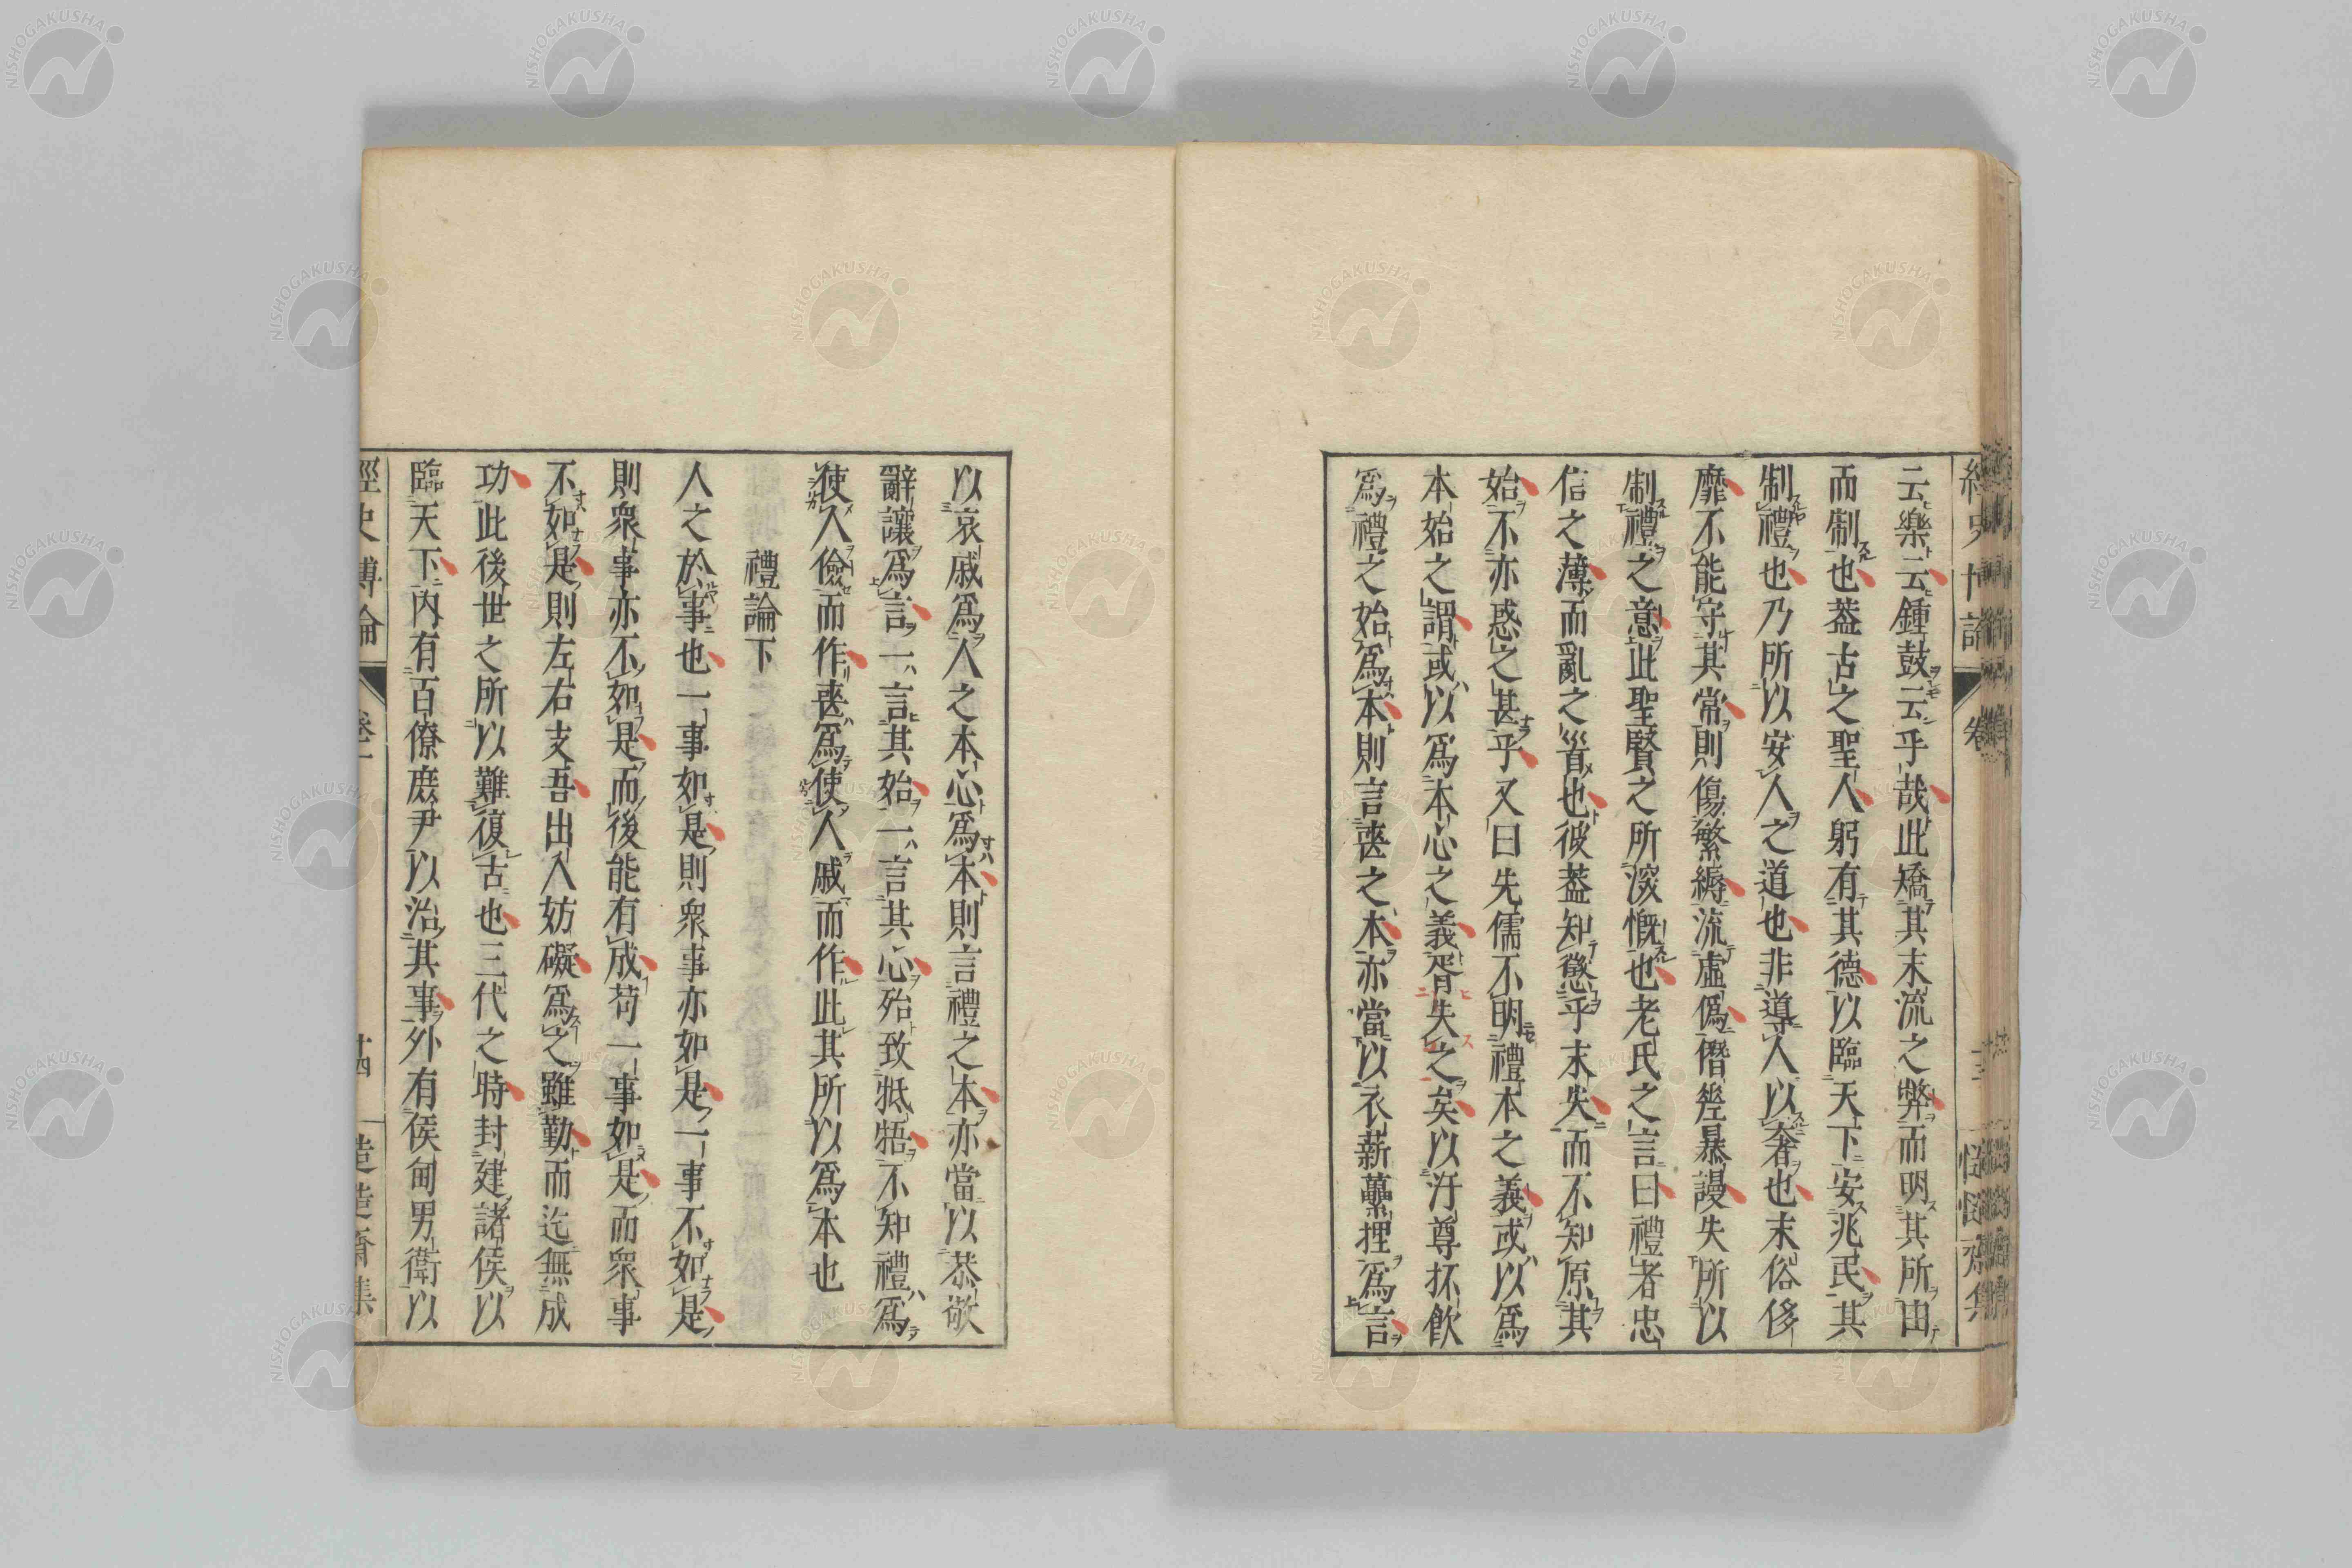 云樂云鍾鼓云乎哉此矯其末流之弊而明其所由
而制也葢古之聖人躬有其德以臨天下安兆民其
制禮也乃所以安人之道也非導人以奢也末俗侈
靡不能守其常則傷繁縟流虛僞僭登暴謾失所以
制禮之意此聖賢之所深慨也老氏之言曰禮者忠
信之薄而亂之首也彼葢知懲乎末失而不知原其
始不亦惑之甚乎又曰先儒不明禮本之義或以爲
本始之謂或以爲本心之義胥失之矣以汙尊抔飲
爲禮之始爲本則言喪之本亦當以衣薪虆埋爲言
以哀戚爲人之本心爲本則言禮之本亦當以恭敬
辭讓爲言一言其始一言其心殆致牴牾不知禮爲
使人儉而作喪爲使人戚而作此其所以爲本也
禮論下
人之於事也一事如是則衆事亦如是一事不如是
則衆事亦不如是而後能有成苟一事如是而衆事
不如是則左右支吾出入妨礙爲之雖勤而迄無成
功此後世之所以難復古也三代之時封建諸侯以
臨天下內有百僚庶尹以治其事外有侯甸男衛以
經史博論 卷一 十四 慥慥齋集